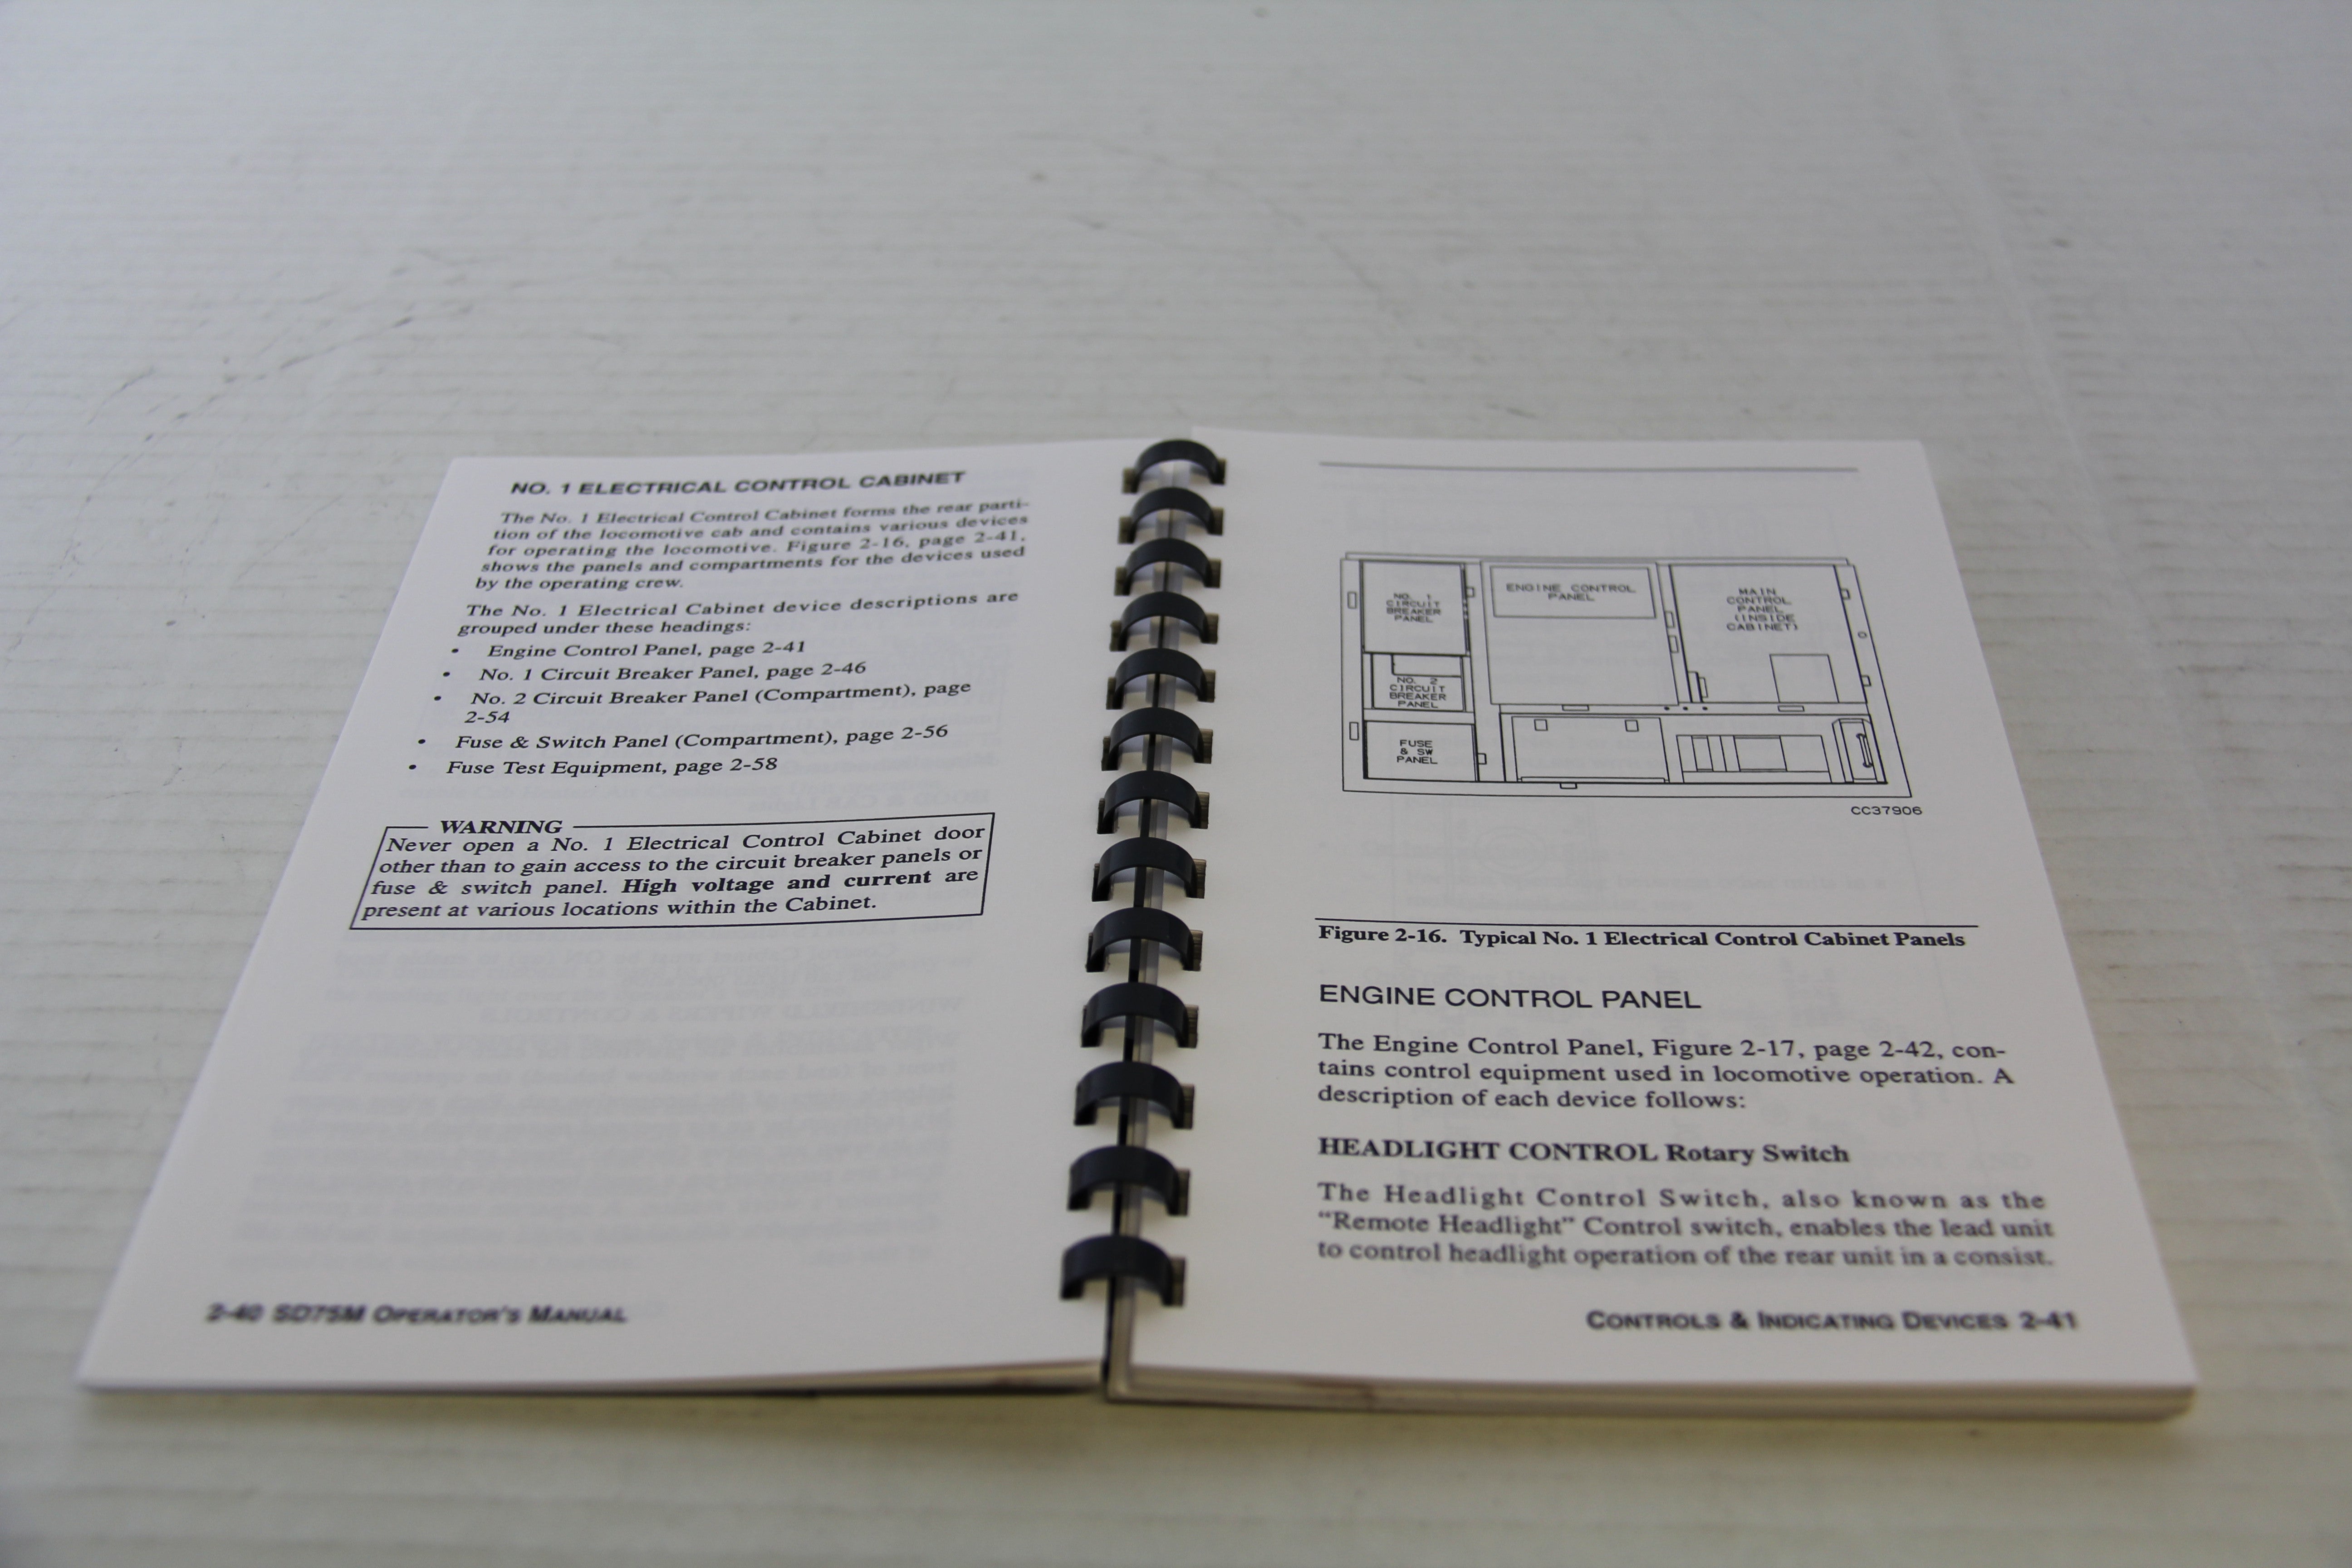 NO. 1 ELECTRICAL CONTROL CABINET
The No. 1 Electrical Control Cabinet forms the rear parti-
tion of the locomotive cab and contains various devices
for operating the locomotive. Figure 2-16, page 2-41,
shows the panels and compartments for the devices used
by the operating crew.
The No. 1 Electrical Cabinet device descriptions are
grouped under these headings:
• Engine Control Panel, page 2-41
• No. 1 Circuit Breaker Panel, page 2-46
• No. 2 Circuit Breaker Panel (Compartment), page
2-54
• Fuse & Switch Panel (Compartment), page 2-56
• Fuse Test Equipment, page 2-58
WARNING
Never open a No. 1 Electrical Control Cabinet door
other than to gain access to the circuit breaker panels or
fuse & switch panel. High voltage and current are
present at various locations within the Cabinet.
2-40 SD75M OPERATOR'S MANUAL
NO. 1
CIRCUIT
BREAKER
PANEL
ENGINE CONTROL
PANEL
MAIN
CONTROL
PANEL
(INSIDE
CABINET)
NO. 2
CIRCUIT
BREAKER
PANEL
FUSE
& SW
PANEL
CC37906
Figure 2-16. Typical No. 1 Electrical Control Cabinet Panels
ENGINE CONTROL PANEL
The Engine Control Panel, Figure 2-17, page 2-42, con-
tains control equipment used in locomotive operation. A
description of each device follows:
HEADLIGHT CONTROL Rotary Switch
The Headlight Control Switch, also known as the
“Remote Headlight” Control switch, enables the lead unit
to control headlight operation of the rear unit in a consist.
CONTROLS & INDICATING DEVICES 2-41